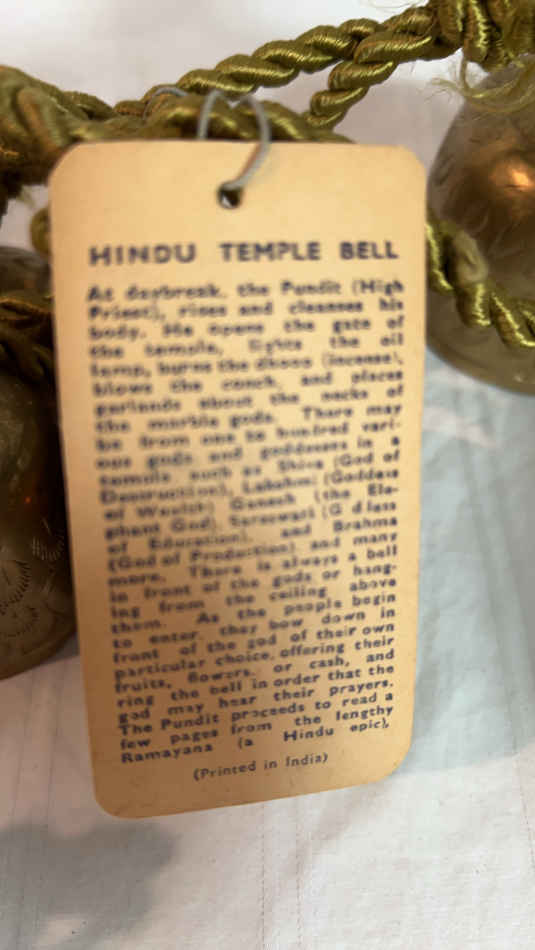 HINDU TEMPLE BELL
At daybreak, the Pundit (High
Priest), rises and cleanses his
body. He opens the gate of
the temple, lights the oil
lamp, burns the dhoop (incense),
blows the conch, and places
garlands about the necks of
the marble gods. There may
be from one to hundred vari-
ous gods and goddesses in a
temple such as Shiva (God of
Destruction), Lakshmi (Goddess
of Wealth) Ganesh (the Ele-
phant God), Sarsswati (G d less
of Education), and Brahma
(God of Production) and many
more. There is always a bell
in front of the gods or hang-
ing from the ceiling above
them. As the people begin
to enter, they bow down in
front of the god of their own
particular choice, offering their
fruits, flowers, or cash, and
ring the bell in order that the
god may hear their prayers.
The Pundit proceeds to read a
few pages from the lengthy
Ramayana (a Hindu epic),
(Printed in India)